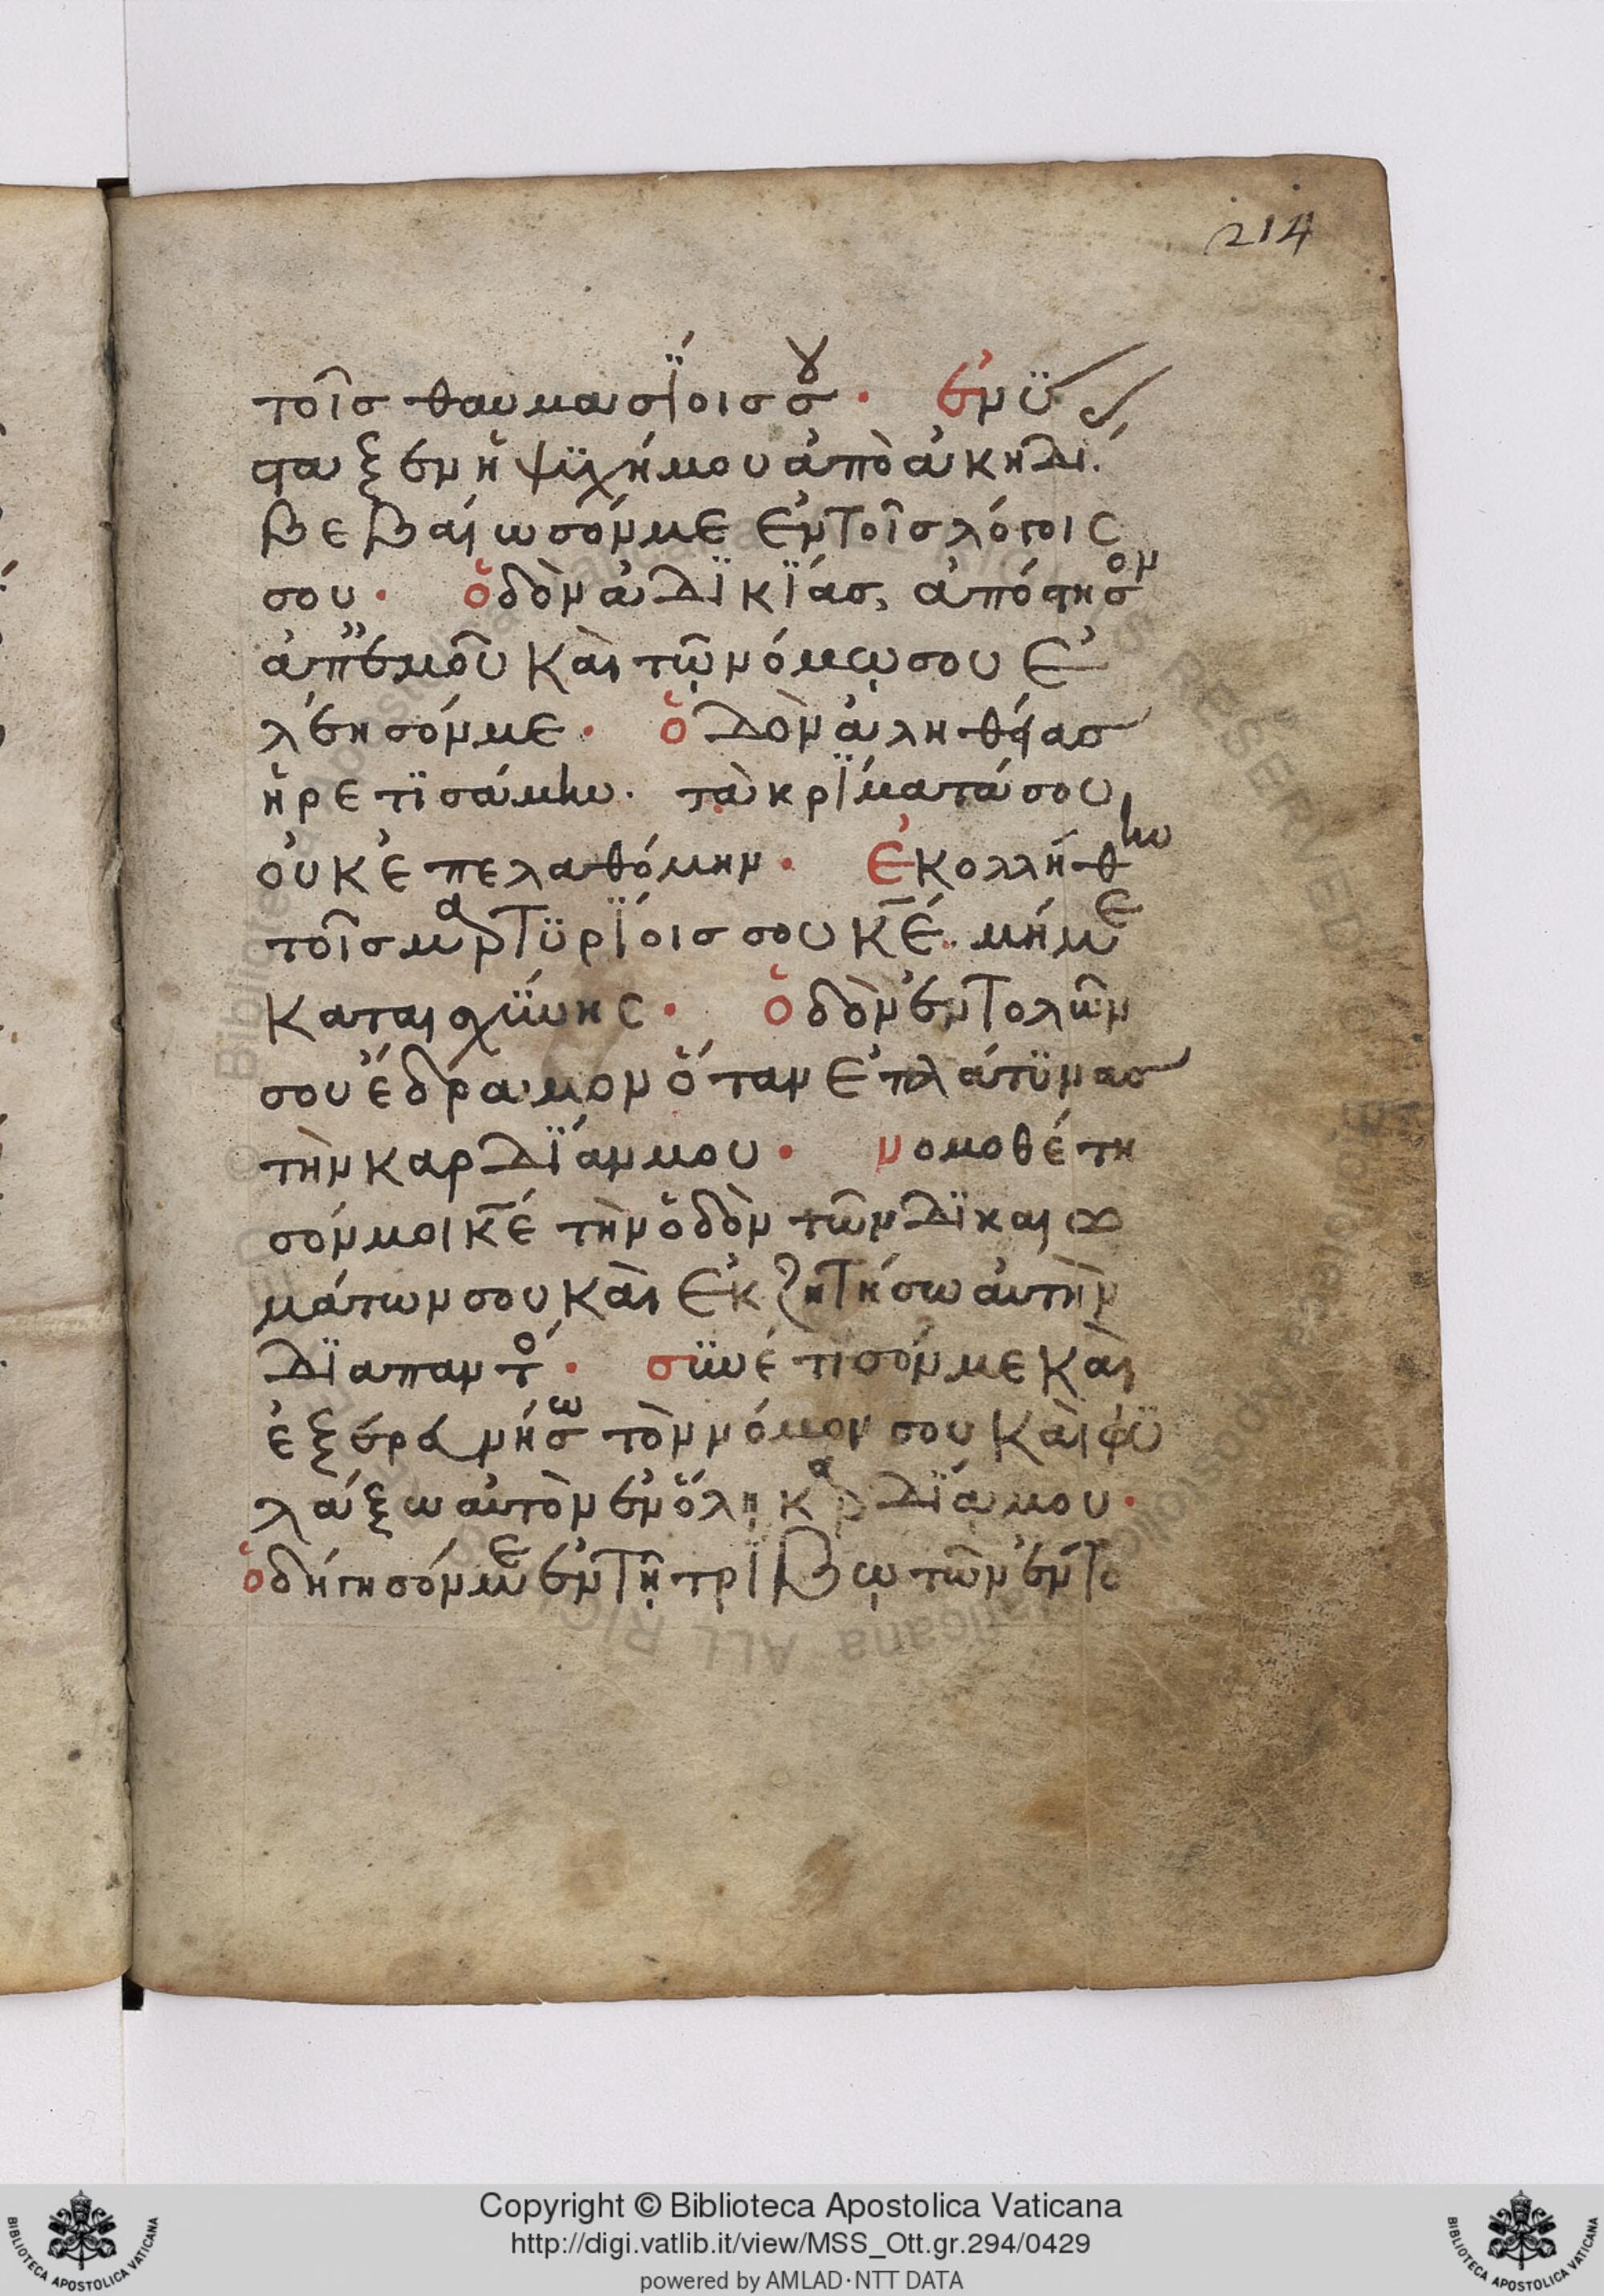 214
τοῖς θαυμασΐοις σου· ἐνϋς
ταξεν ἡ ψϋχή μου ἀπὸ ἀκηδί.
βεβαίωσόν με ἐν τοῖς λόγοις
σου· ὁδὸν ἀδϊκΐας, ἀπόστησον
ἀπ' ἐμοῦ καὶ τῷ νόμῳ σου ἐ
λέησόν με· ὁδὸν ἀληθείας
ἡρετϊσάμην. τὰ κρΐματά σου
οὐκ ἐπελαθόμην· ἐκολλήθην
τοῖς μαρτϋρΐοις σου κ̅ε̅. μή με
καταισχϋνης· ὁδὸν ἐντολῶν
σου ἔδραμον ὅταν ἐπλάτϋνας
τὴν καρδΐαν μου· νομοθέτη
σόν μοι κ̅ε̅ τὴν ὁδὸν τῶν δϊκαιω
μάτων σου καὶ ἐκζητήσω αὐτὴν
δϊαπαντό· σϋνέτισόν με καὶ
ἐξεραυνήσω τὸν νόμον σου καὶ φϋ
λάξω αὐτὸν ἐν ὅλῃ καρδΐᾳ μου·
ὁδήγησόν με ἐν τῇ τρΐβῳ τῶν ἐντο
Copyright © Biblioteca Apostolica Vaticana
http://digi.vatlib.it/view/MSS_Ott.gr.294/0429
powered by AMLAD·NTT DATA
BIBLIOTECA APOSTOLICA VATICANA
BIBLIOTECA APOSTOLICA VATICANA